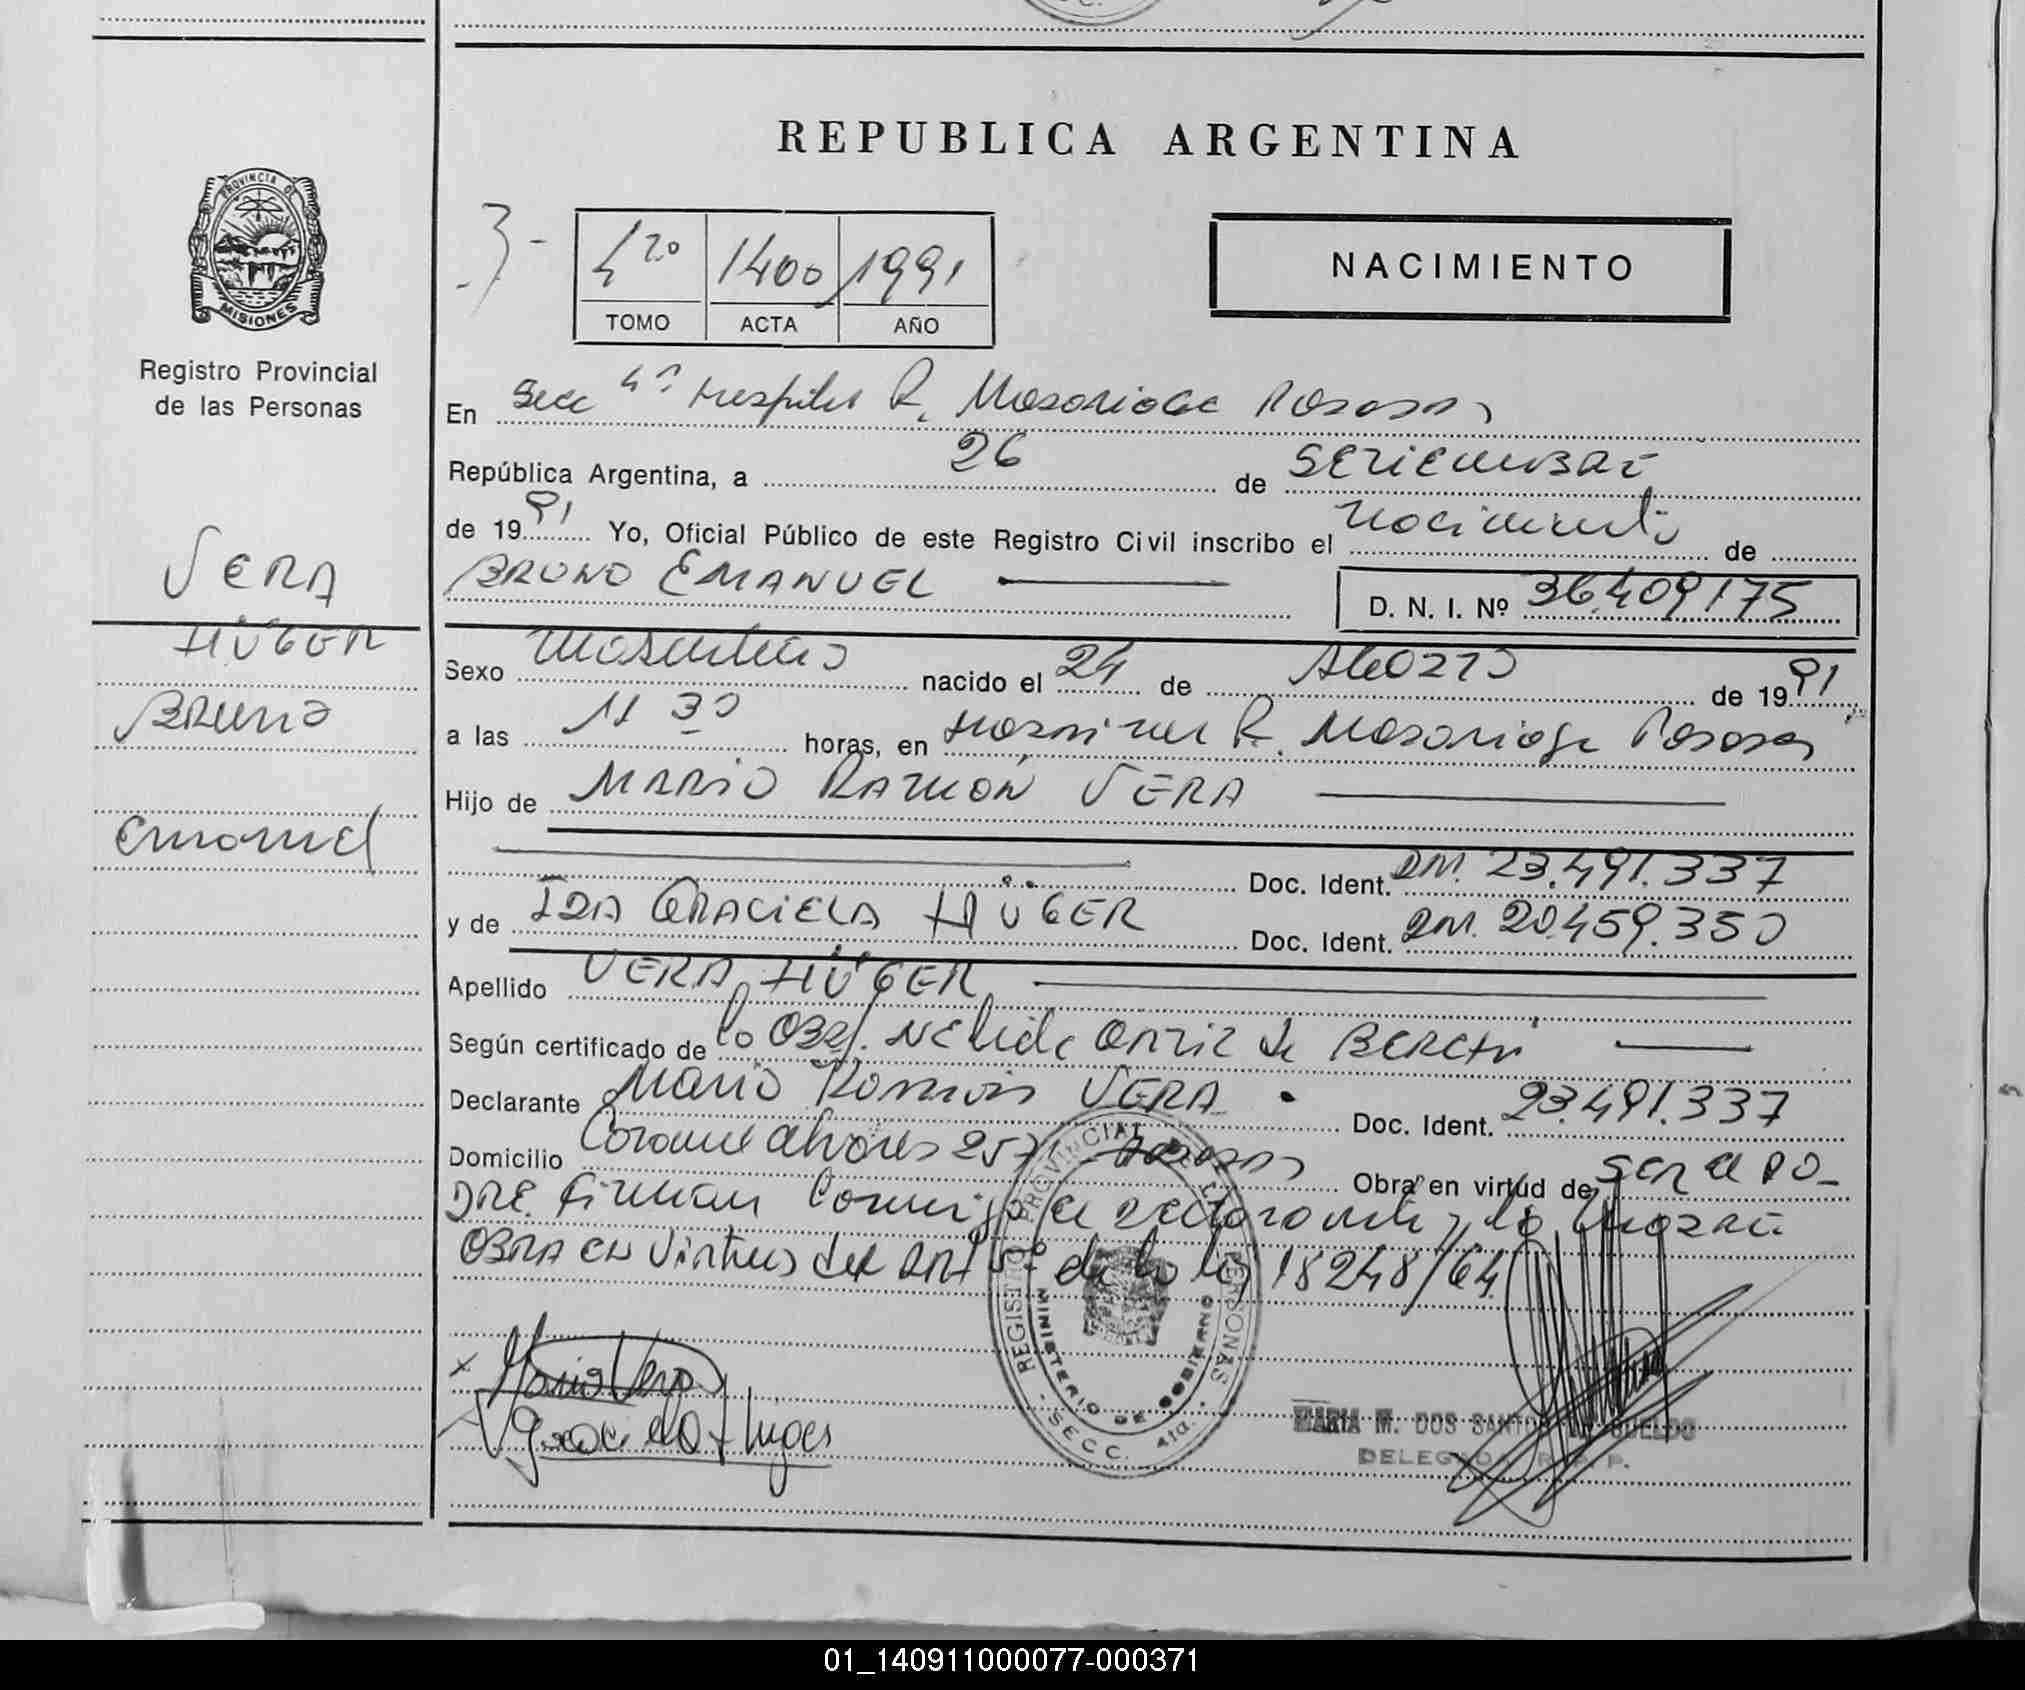 REPUBLICA ARGENTINA
PROVINCIA DE
MISIONES
Registro Provincial
de las Personas
3-
4to 1400 1991
TOMO ACTA AÑO
NACIMIENTO
En Secc 4ª Hospital R. Madariaga Posadas
República Argentina, a 26 de SETIEMBRE
de 1991 Yo, Oficial Público de este Registro Civil inscribo el nacimiento de
BRUNO EMANUEL
D. N. I. Nº 36.409.175
VERA
HÜGER
Bruno
Emanuel
Sexo Masculino nacido el 24 de AGOSTO de 1991
a las 11 30 horas, en Hospital R. Madariaga Posadas
Hijo de MARIO RAMON VERA
Doc. Ident. DNI. 23.491.337
y de IDA GRACIELA HÜGER Doc. Ident. DNI. 20.459.350
Apellido VERA HÜGER
Según certificado de la OBST. Nelida ORTIZ de
Declarante Mario Ramón VERA Doc. Ident. 23.491.337
Domicilio 257 Posadas Obra en virtud de SER el PA-
DRE. Firman Conmigo el declarante y la Madre
OBRA en Virtud del ART 5º de la ley 18248/64
Mario Vera
Graciela Huger
REGISTRO PROVINCIAL DE LAS PERSONAS
MINISTERIO DE GOBIERNO
SECC. 4ta.
MARIA M. DOS SANTOS
DELEGADA R. P. P.
01_140911000077-000371